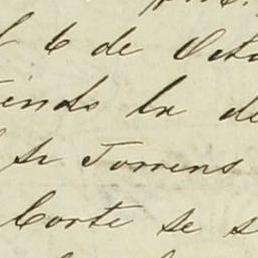 6 de Octu
iendo la de
Sr Torrens
Corte se s